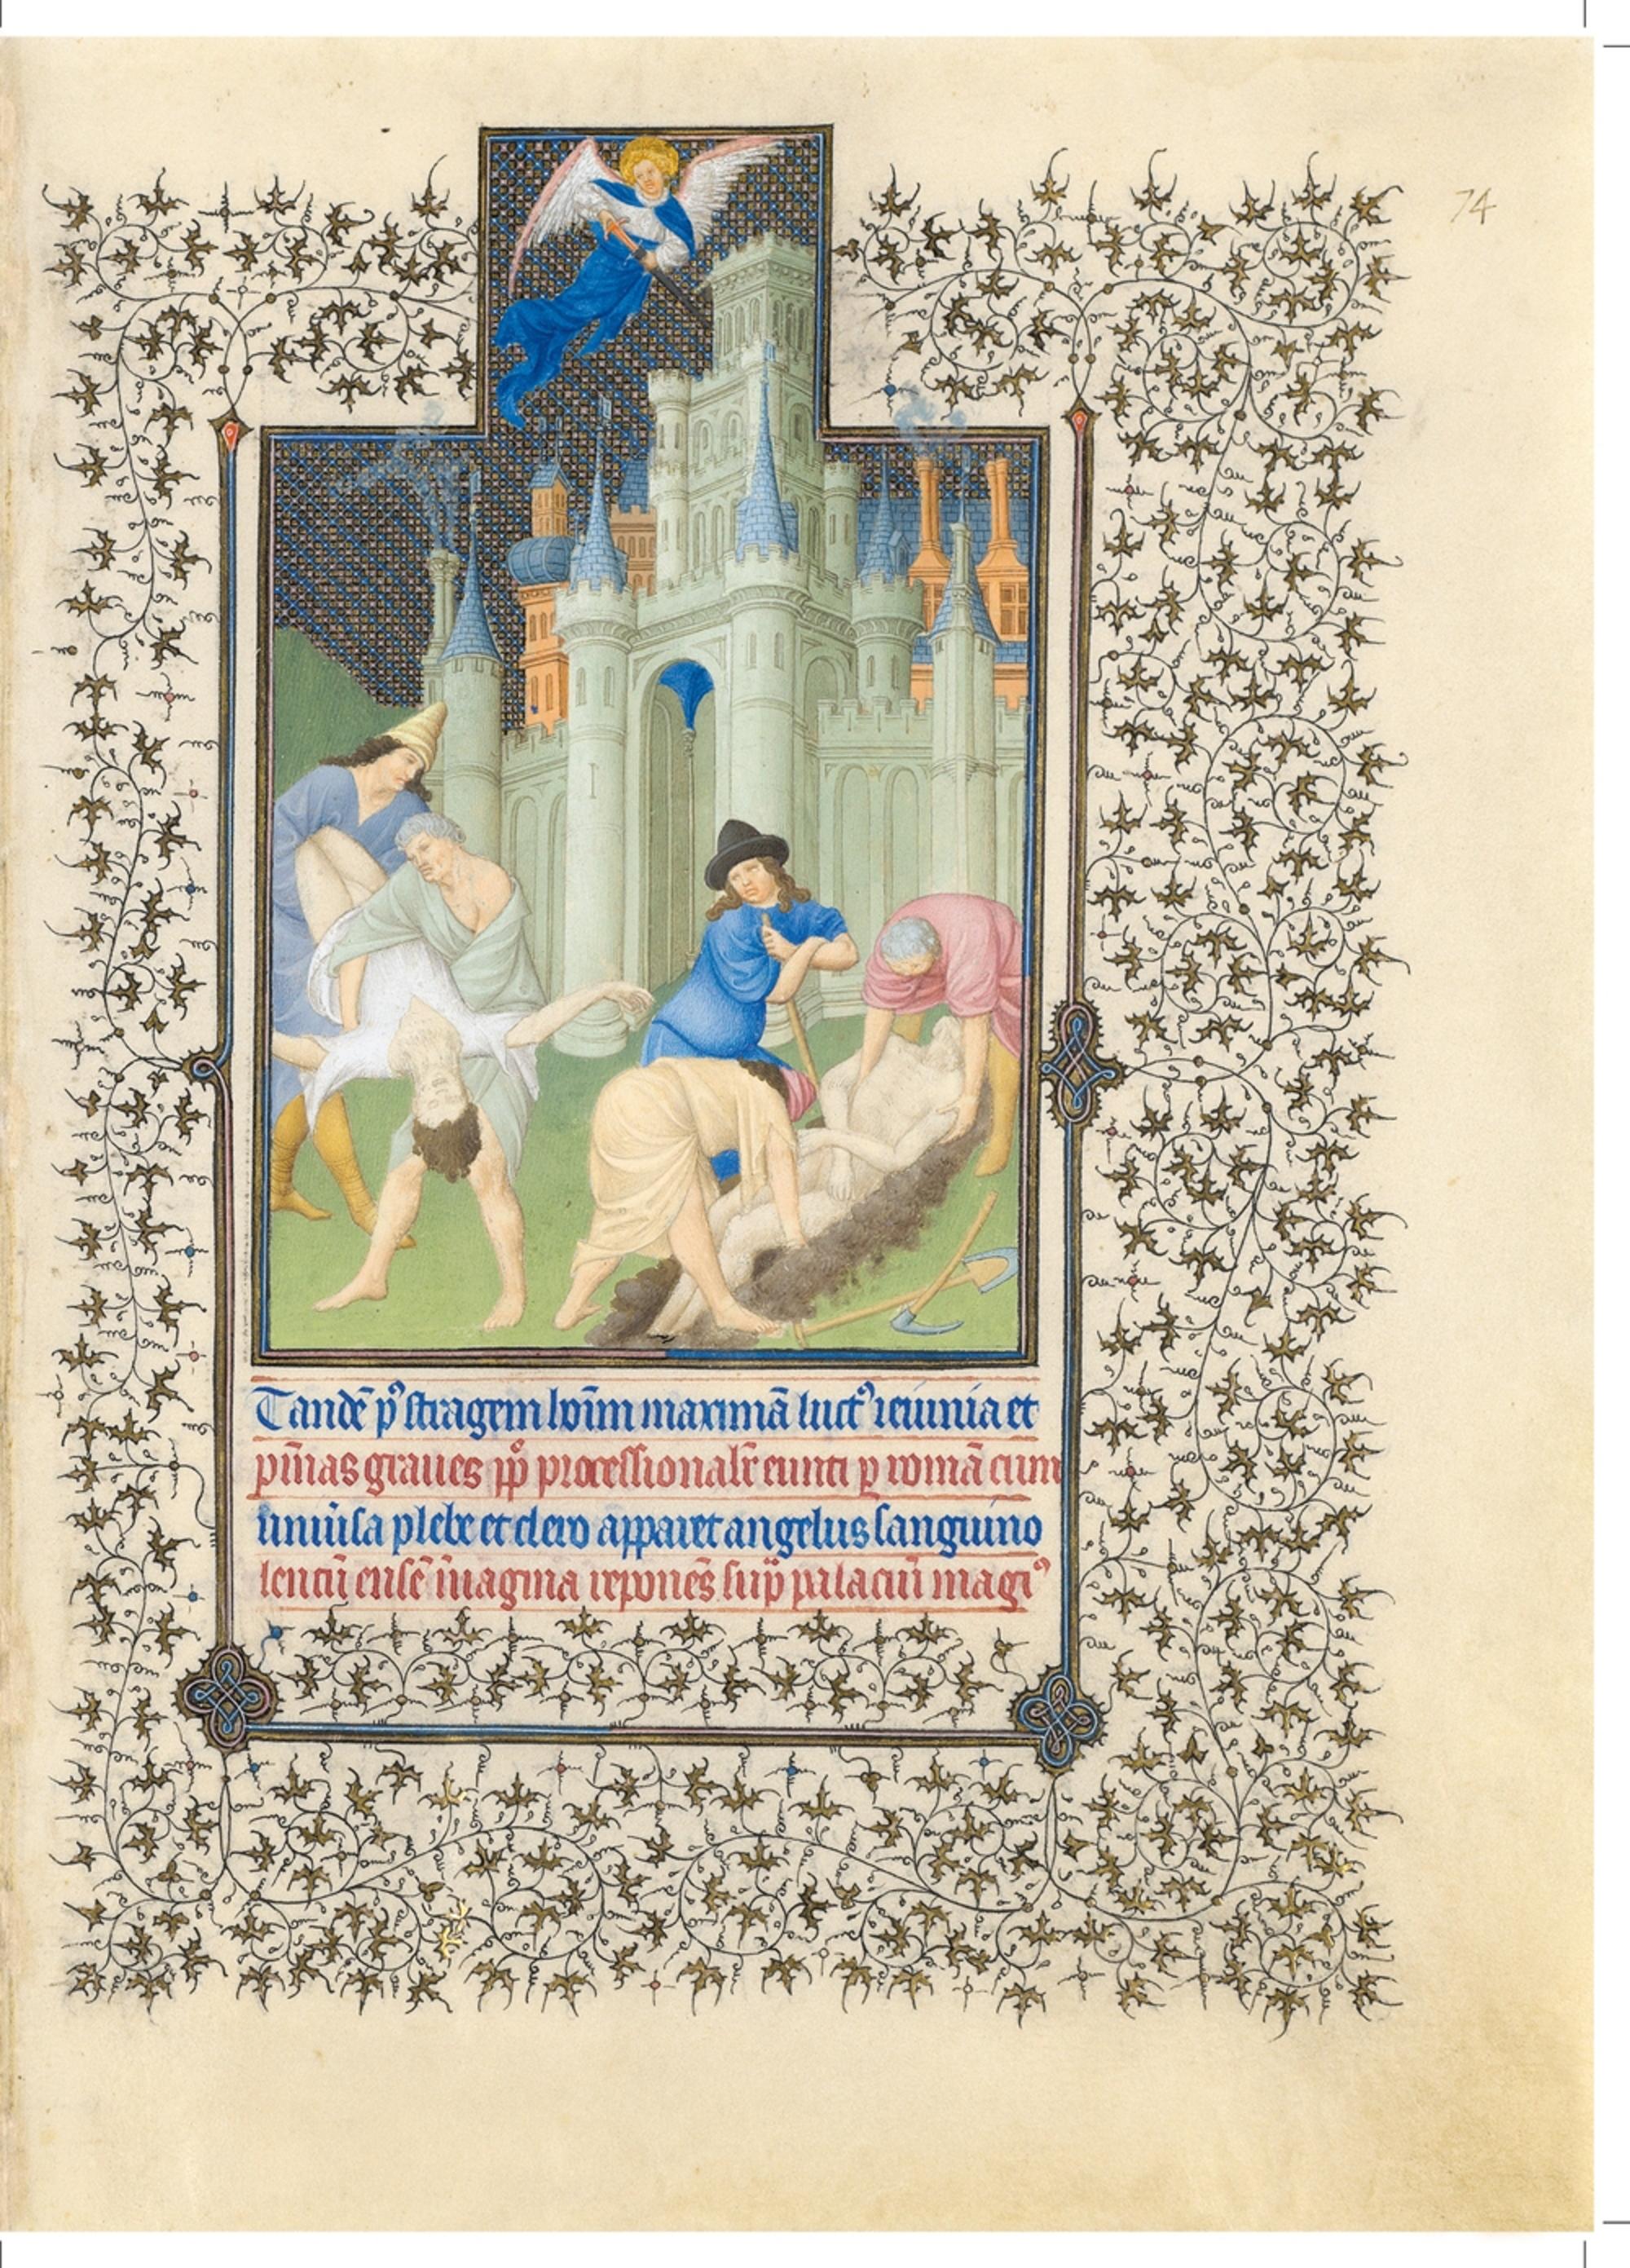 74
Tandē pꝰ stragem hoīm maximā luctꝰ ieiunia et
pn̄ias graues pp̄ processionalr̄ eunti ꝑ romā cum
uniūsa plebe et clero apparet angelus sanguino
lentū ensē ī uagina reponēs sup̄ palaciū magꝰ